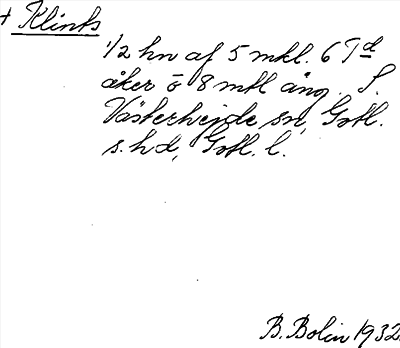 + Klints
1/2 hn af 5 mkl. 6 Td
åker o 8 mkl äng. S.
Västerhejde sn, Gotl.
s. hd, Gotl. l.
B. Bolin 1932.